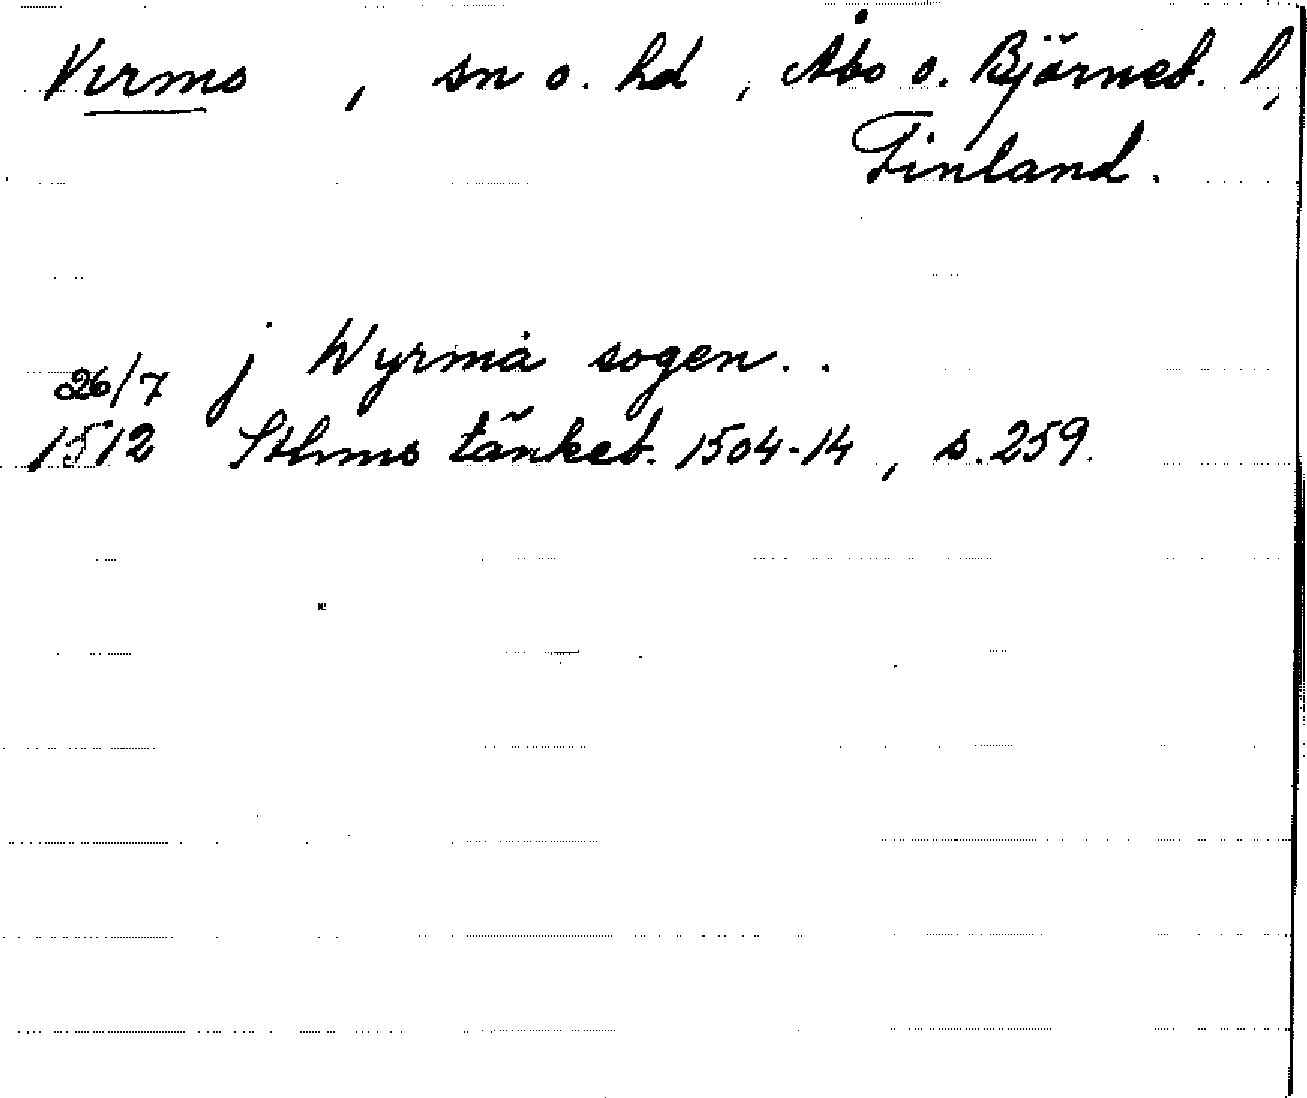 Virmo , sn o. hd , Åbo o. Björneb. l,
Finland.
26/7 j Wyrma sogen..
1512 Sthms tänkeb. 1504-14 , s. 259.